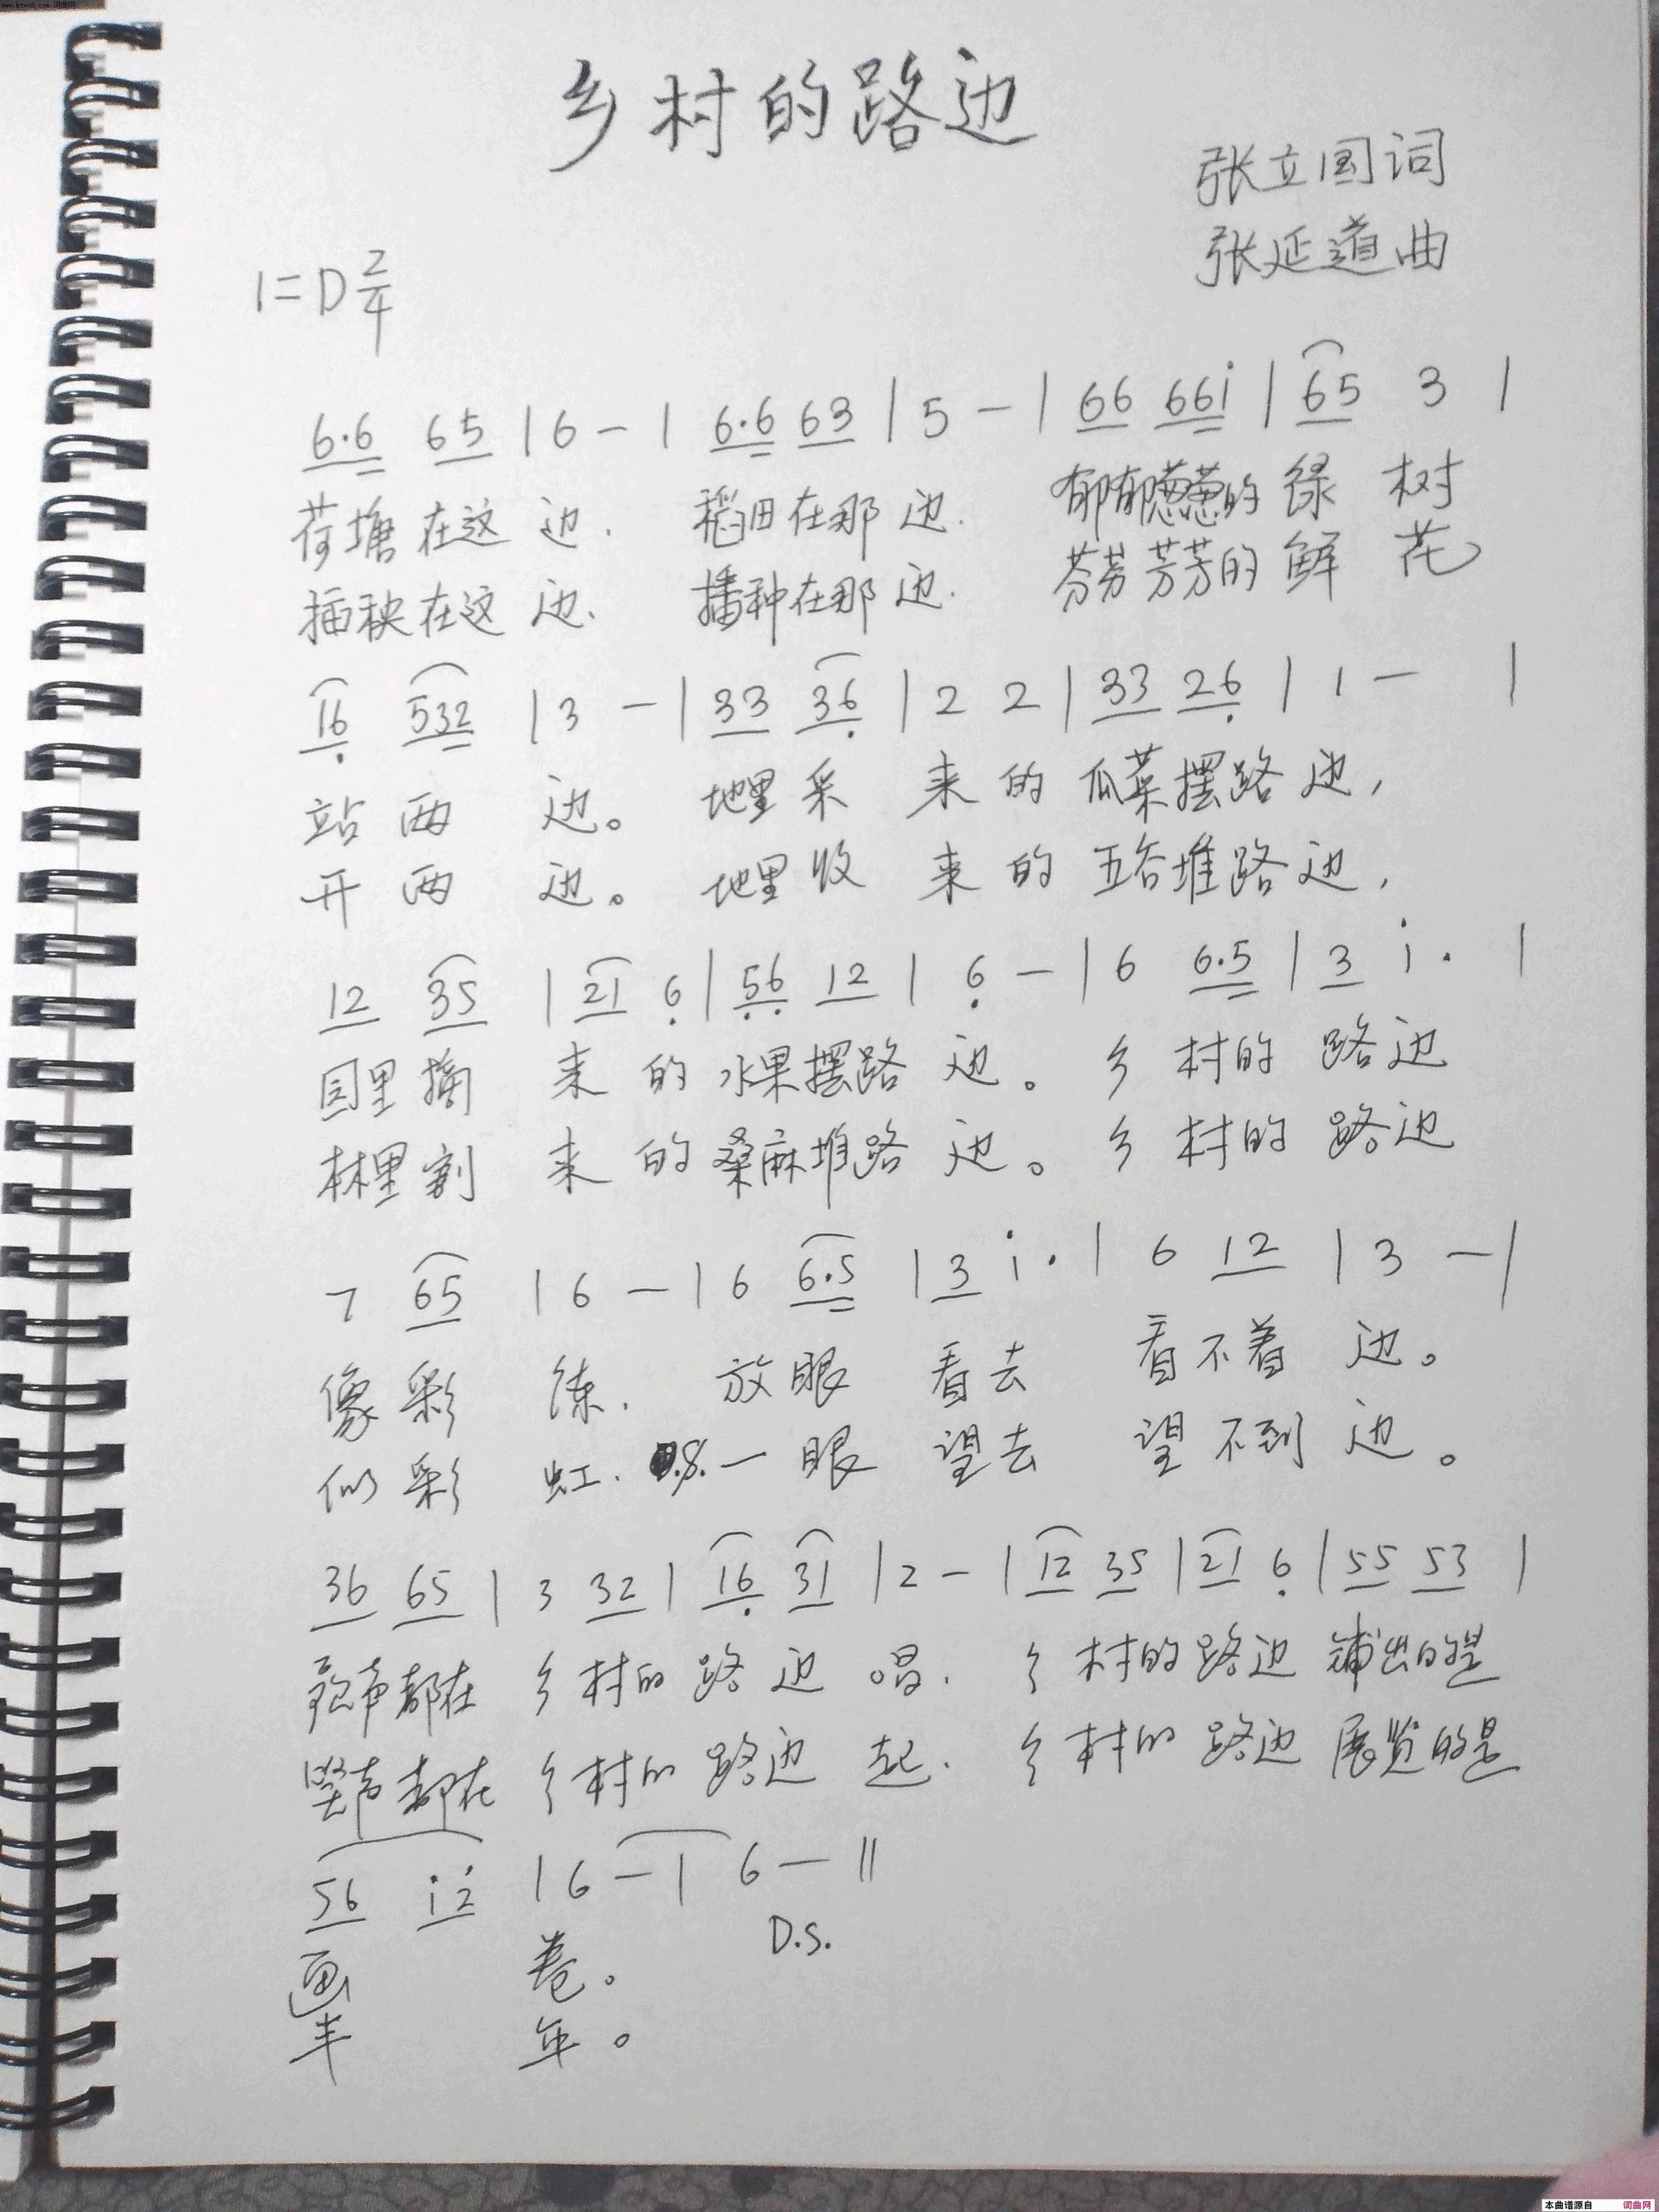 乡村的路边
张立国词
张延道曲
1=D 2/4
6·6 65 | 6 - | 6·6 63 | 5 - | 66 66i | 65 3 |
荷塘在这边. 稻田在那边. 郁郁葱葱的绿树
插秧在这边. 播种在那边. 芬芬芳芳的鲜花
16 532 | 3 - | 33 36 | 2 2 | 33 26 | 1 - |
站两边。 地里采来的瓜菜摆路边,
开两边。 地里收来的五谷堆路边,
12 35 | 21 6 | 56 12 | 6 - | 6 6·5 | 3 i· |
园里摘来的水果摆路边。 乡村的路边
林里割来的桑麻堆路边。 乡村的路边
7 65 | 6 - | 6 6·5 | 3 i· | 6 12 | 3 - |
像彩练. 放眼看去 看不着边。
似彩虹. D.S. 一眼望去 望不到边。
36 65 | 3 32 | 16 31 | 2 - | 12 35 | 21 6 | 55 53 |
歌声都在乡村的路边唱. 乡村的路边铺出的是
声都在乡村的路边起. 乡村的路边展览的是
56 i2 | 6 - | 6 - ||
D.S.
画卷。
丰年。
本曲谱源自 词曲网